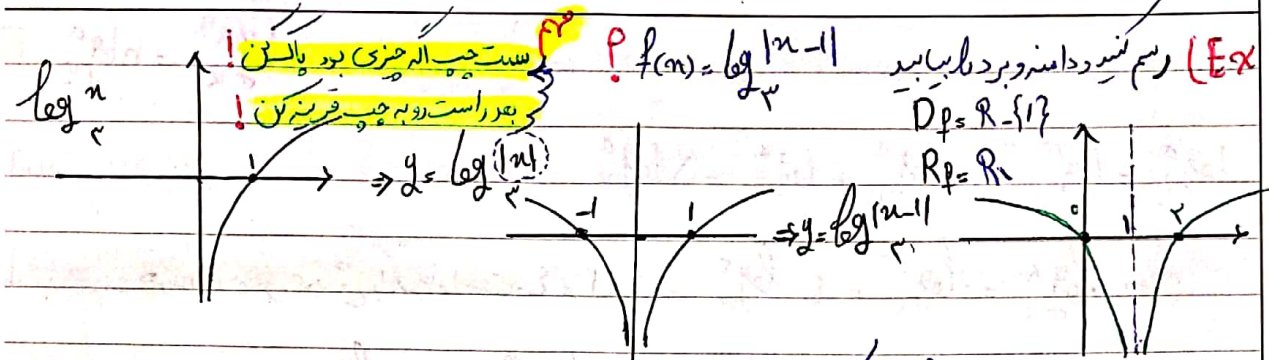 Ex) رسم کنید و دامنه و برد را بیابید f(x) = log₃|x-1| ?
D_f = R - {1}
R_f = R
سمت چپ اگر چیزی بود پاک کن!
بعد راست رو به چپ قرینه کن!
log₃x
1
⇒ y = log₃|x|
-1 1
⇒ y = log₃|x-1|
0 1 2